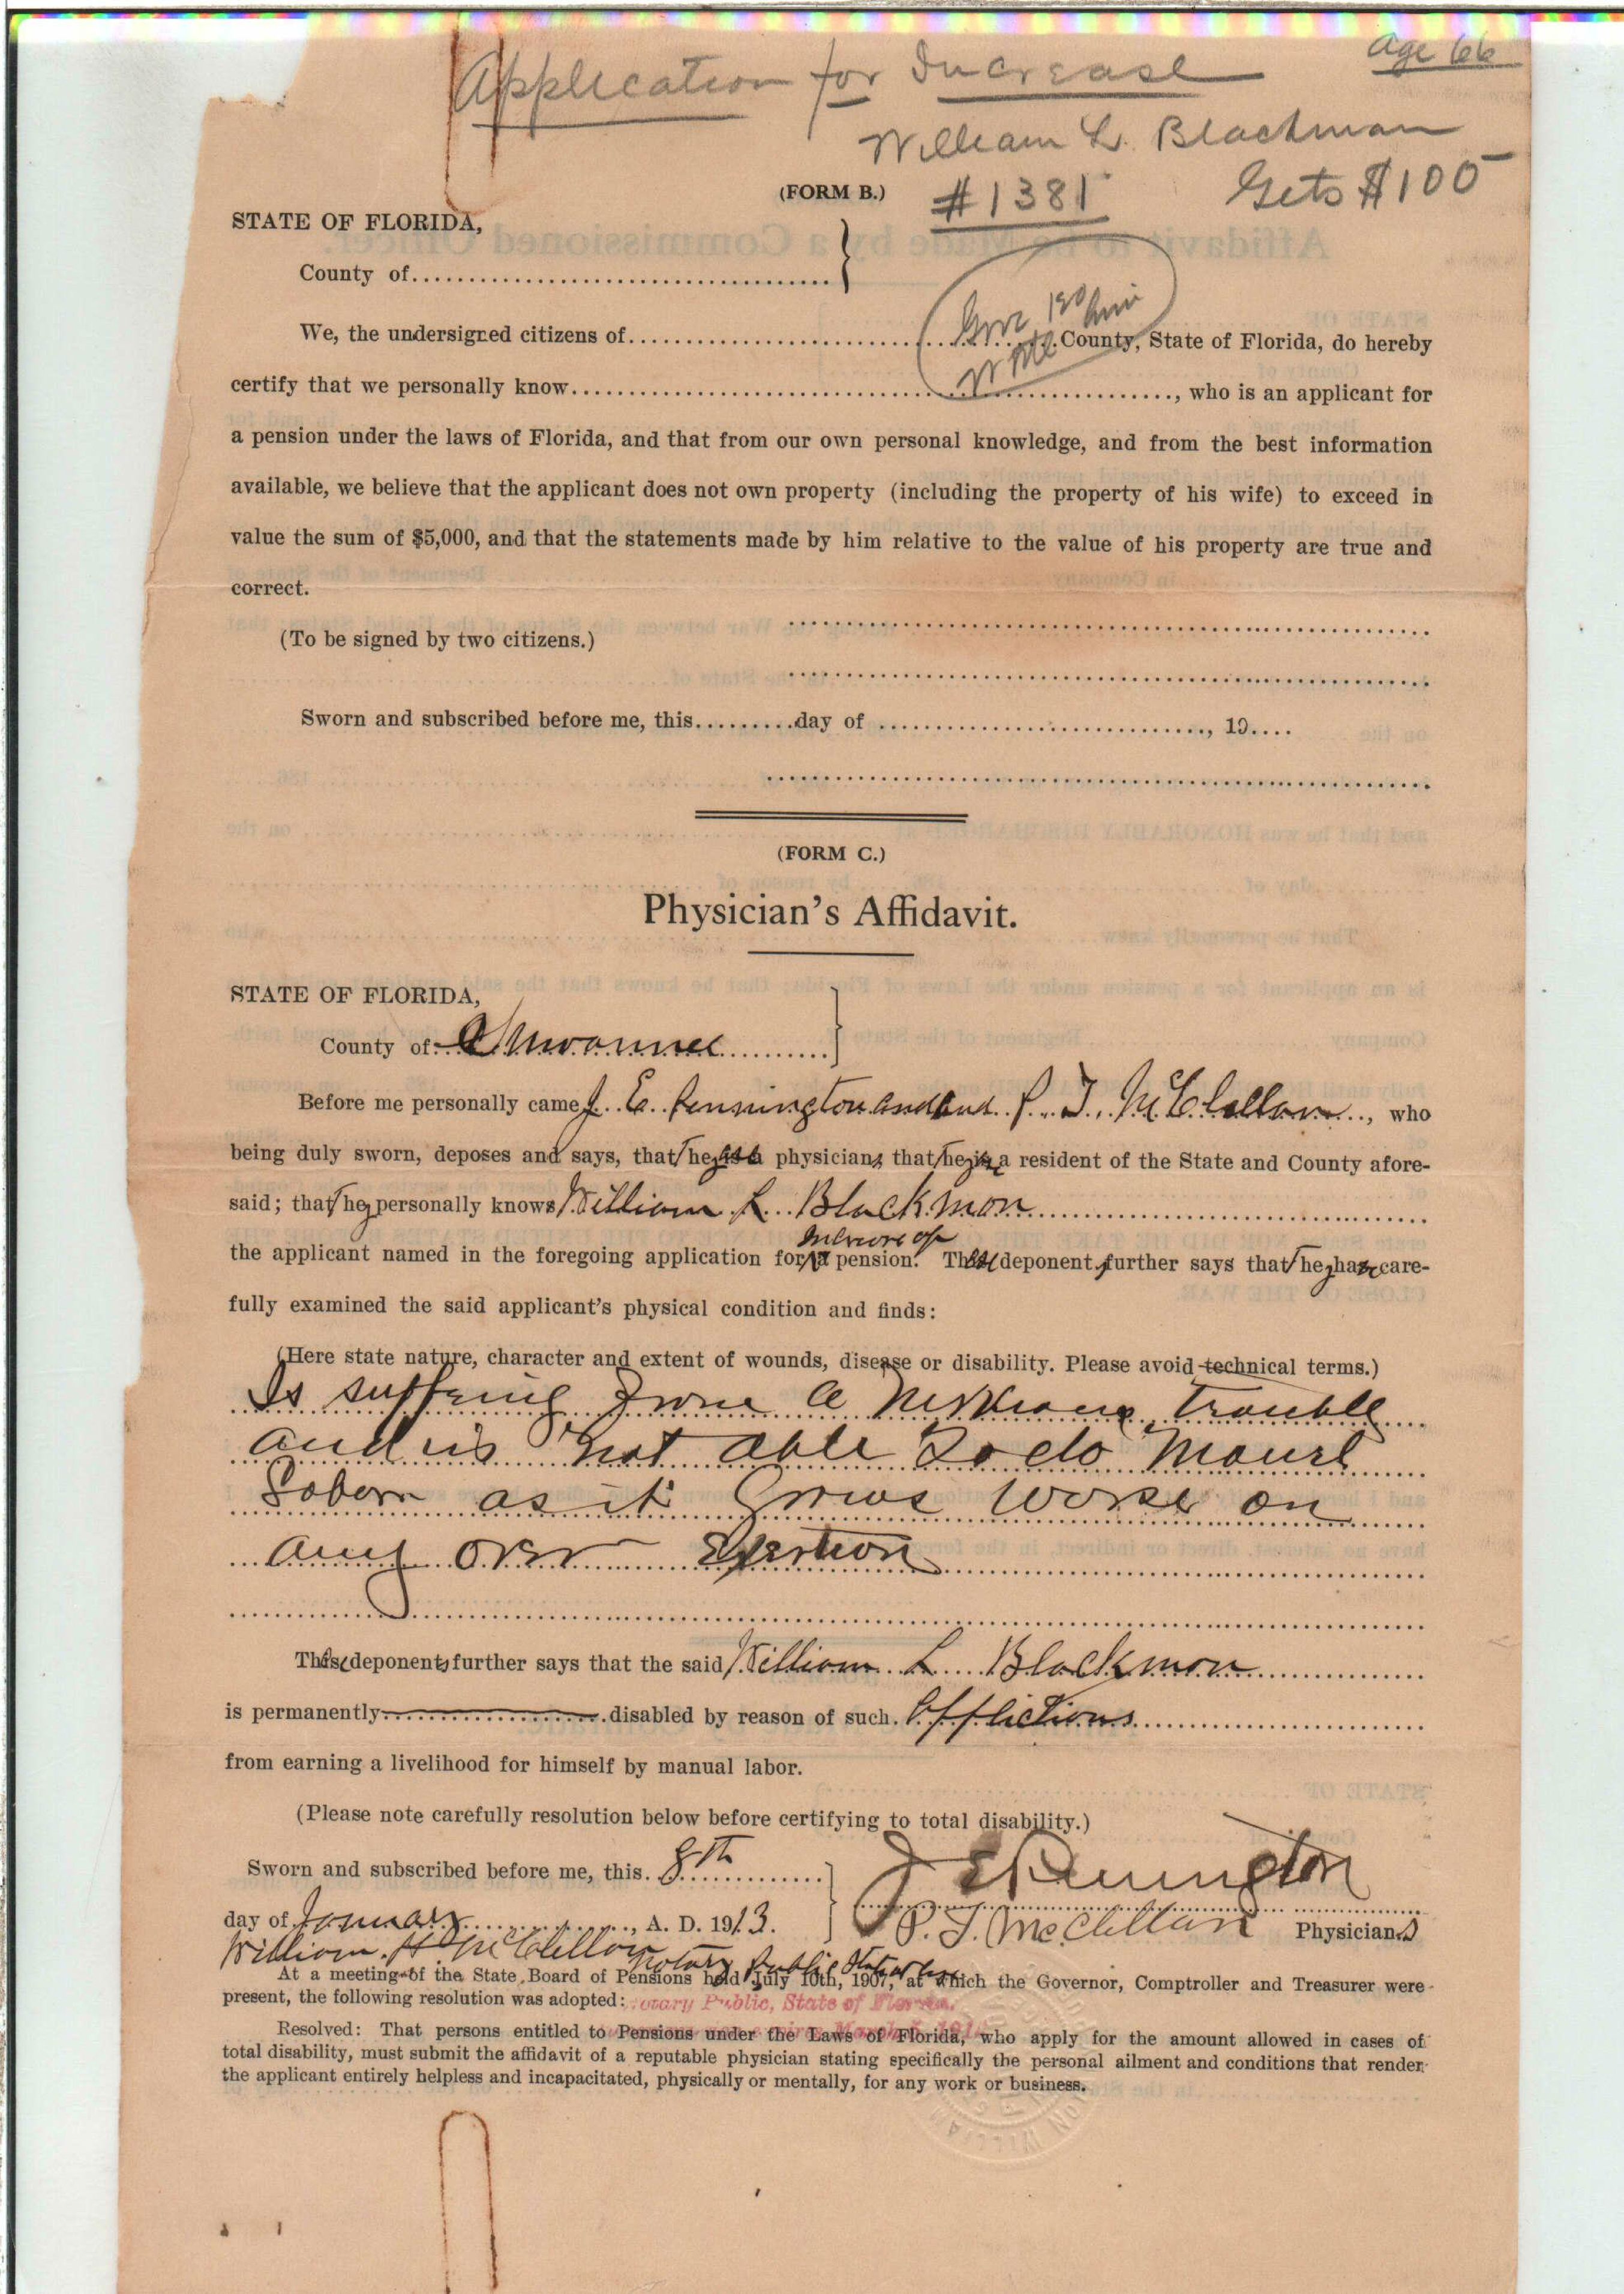 Application for Increase
Age 66
William L. Blackman
(FORM B.) #1381 Gets $100
STATE OF FLORIDA,
County of
We, the undersigned citizens of County, State of Florida, do hereby
certify that we personally know , who is an applicant for
a pension under the laws of Florida, and that from our own personal knowledge, and from the best information
available, we believe that the applicant does not own property (including the property of his wife) to exceed in
value the sum of $5,000, and that the statements made by him relative to the value of his property are true and
correct.
(To be signed by two citizens.)
Sworn and subscribed before me, this.........day of , 19....
(FORM C.)
Physician's Affidavit.
STATE OF FLORIDA,
County of Suwannee
Before me personally came J. E. Pennington and and P. T. McClellan, who
being duly sworn, deposes and says, that they are physicians, that they are a resident of the State and County afore-
said; that they personally knows William L. Blackmon
the applicant named in the foregoing application for Increase of pension. These deponents further says that they have care-
fully examined the said applicant's physical condition and finds:
(Here state nature, character and extent of wounds, disease or disability. Please avoid technical terms.)
Is suffering from a trouble
and is not able to do
Labor as it Grows worse on
any over Exertion
These deponents further says that the said William L. Blackmon
is permanently disabled by reason of such. Afflictions
from earning a livelihood for himself by manual labor.
(Please note carefully resolution below before certifying to total disability.)
Sworn and subscribed before me, this. 8th
J E Pennington
day of January, A. D. 1913.
P. T. McClellan Physicians
William H McClellan
Notary Public State at large
At a meeting of the State Board of Pensions held July 10th, 1907, at which the Governor, Comptroller and Treasurer were
present, the following resolution was adopted:
Notary Public, State of Florida.
Resolved: That persons entitled to Pensions under the Laws of Florida, who apply for the amount allowed in cases of
total disability, must submit the affidavit of a reputable physician stating specifically the personal ailment and conditions that render
the applicant entirely helpless and incapacitated, physically or mentally, for any work or business.